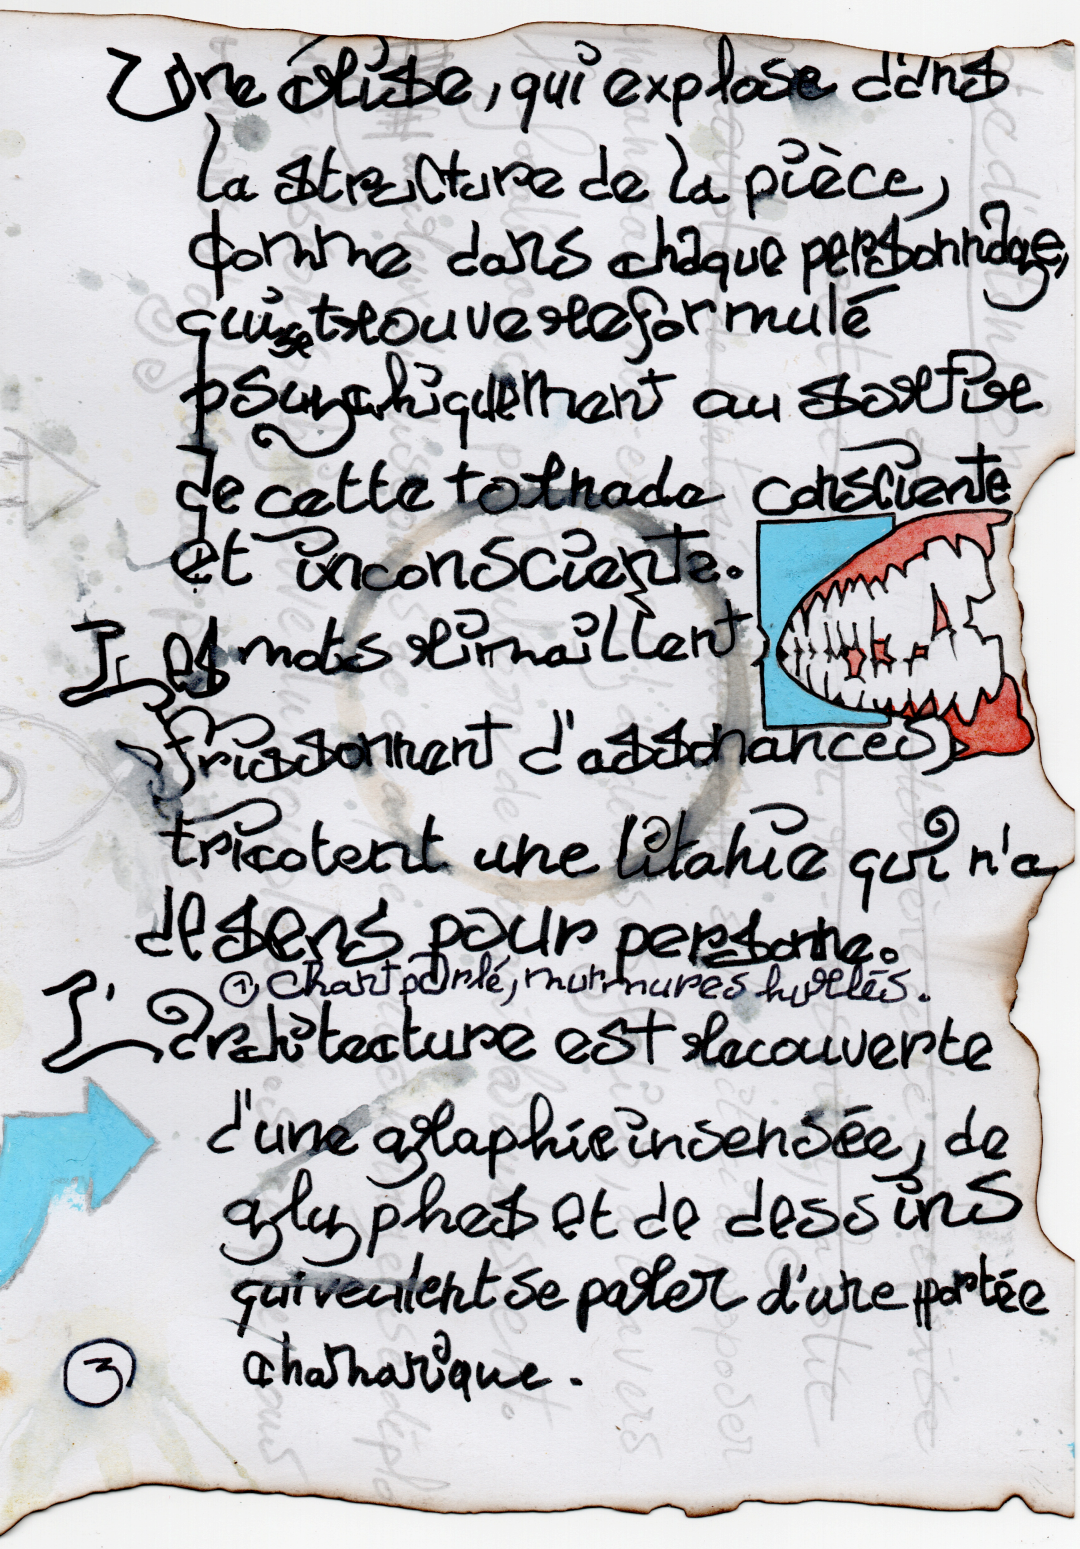 Une élise, qui explose dans
la structure de la pièce,
comme dans chaque personnage,
qui se trouve reformulé
psychiquement au sortire
de cette tornade consciente
et inconsciente.
Les mots rimaillent,
frissonnent d'assonances,
tricotent une litanie qui n'a
de sens pour personne.
① Chant parlé, murmures hurlés.
L'architecture est recouverte
d'une graphie insensée, de
glyphes et de dessins
qui veulent se parler d'une portée
chamanique.
3